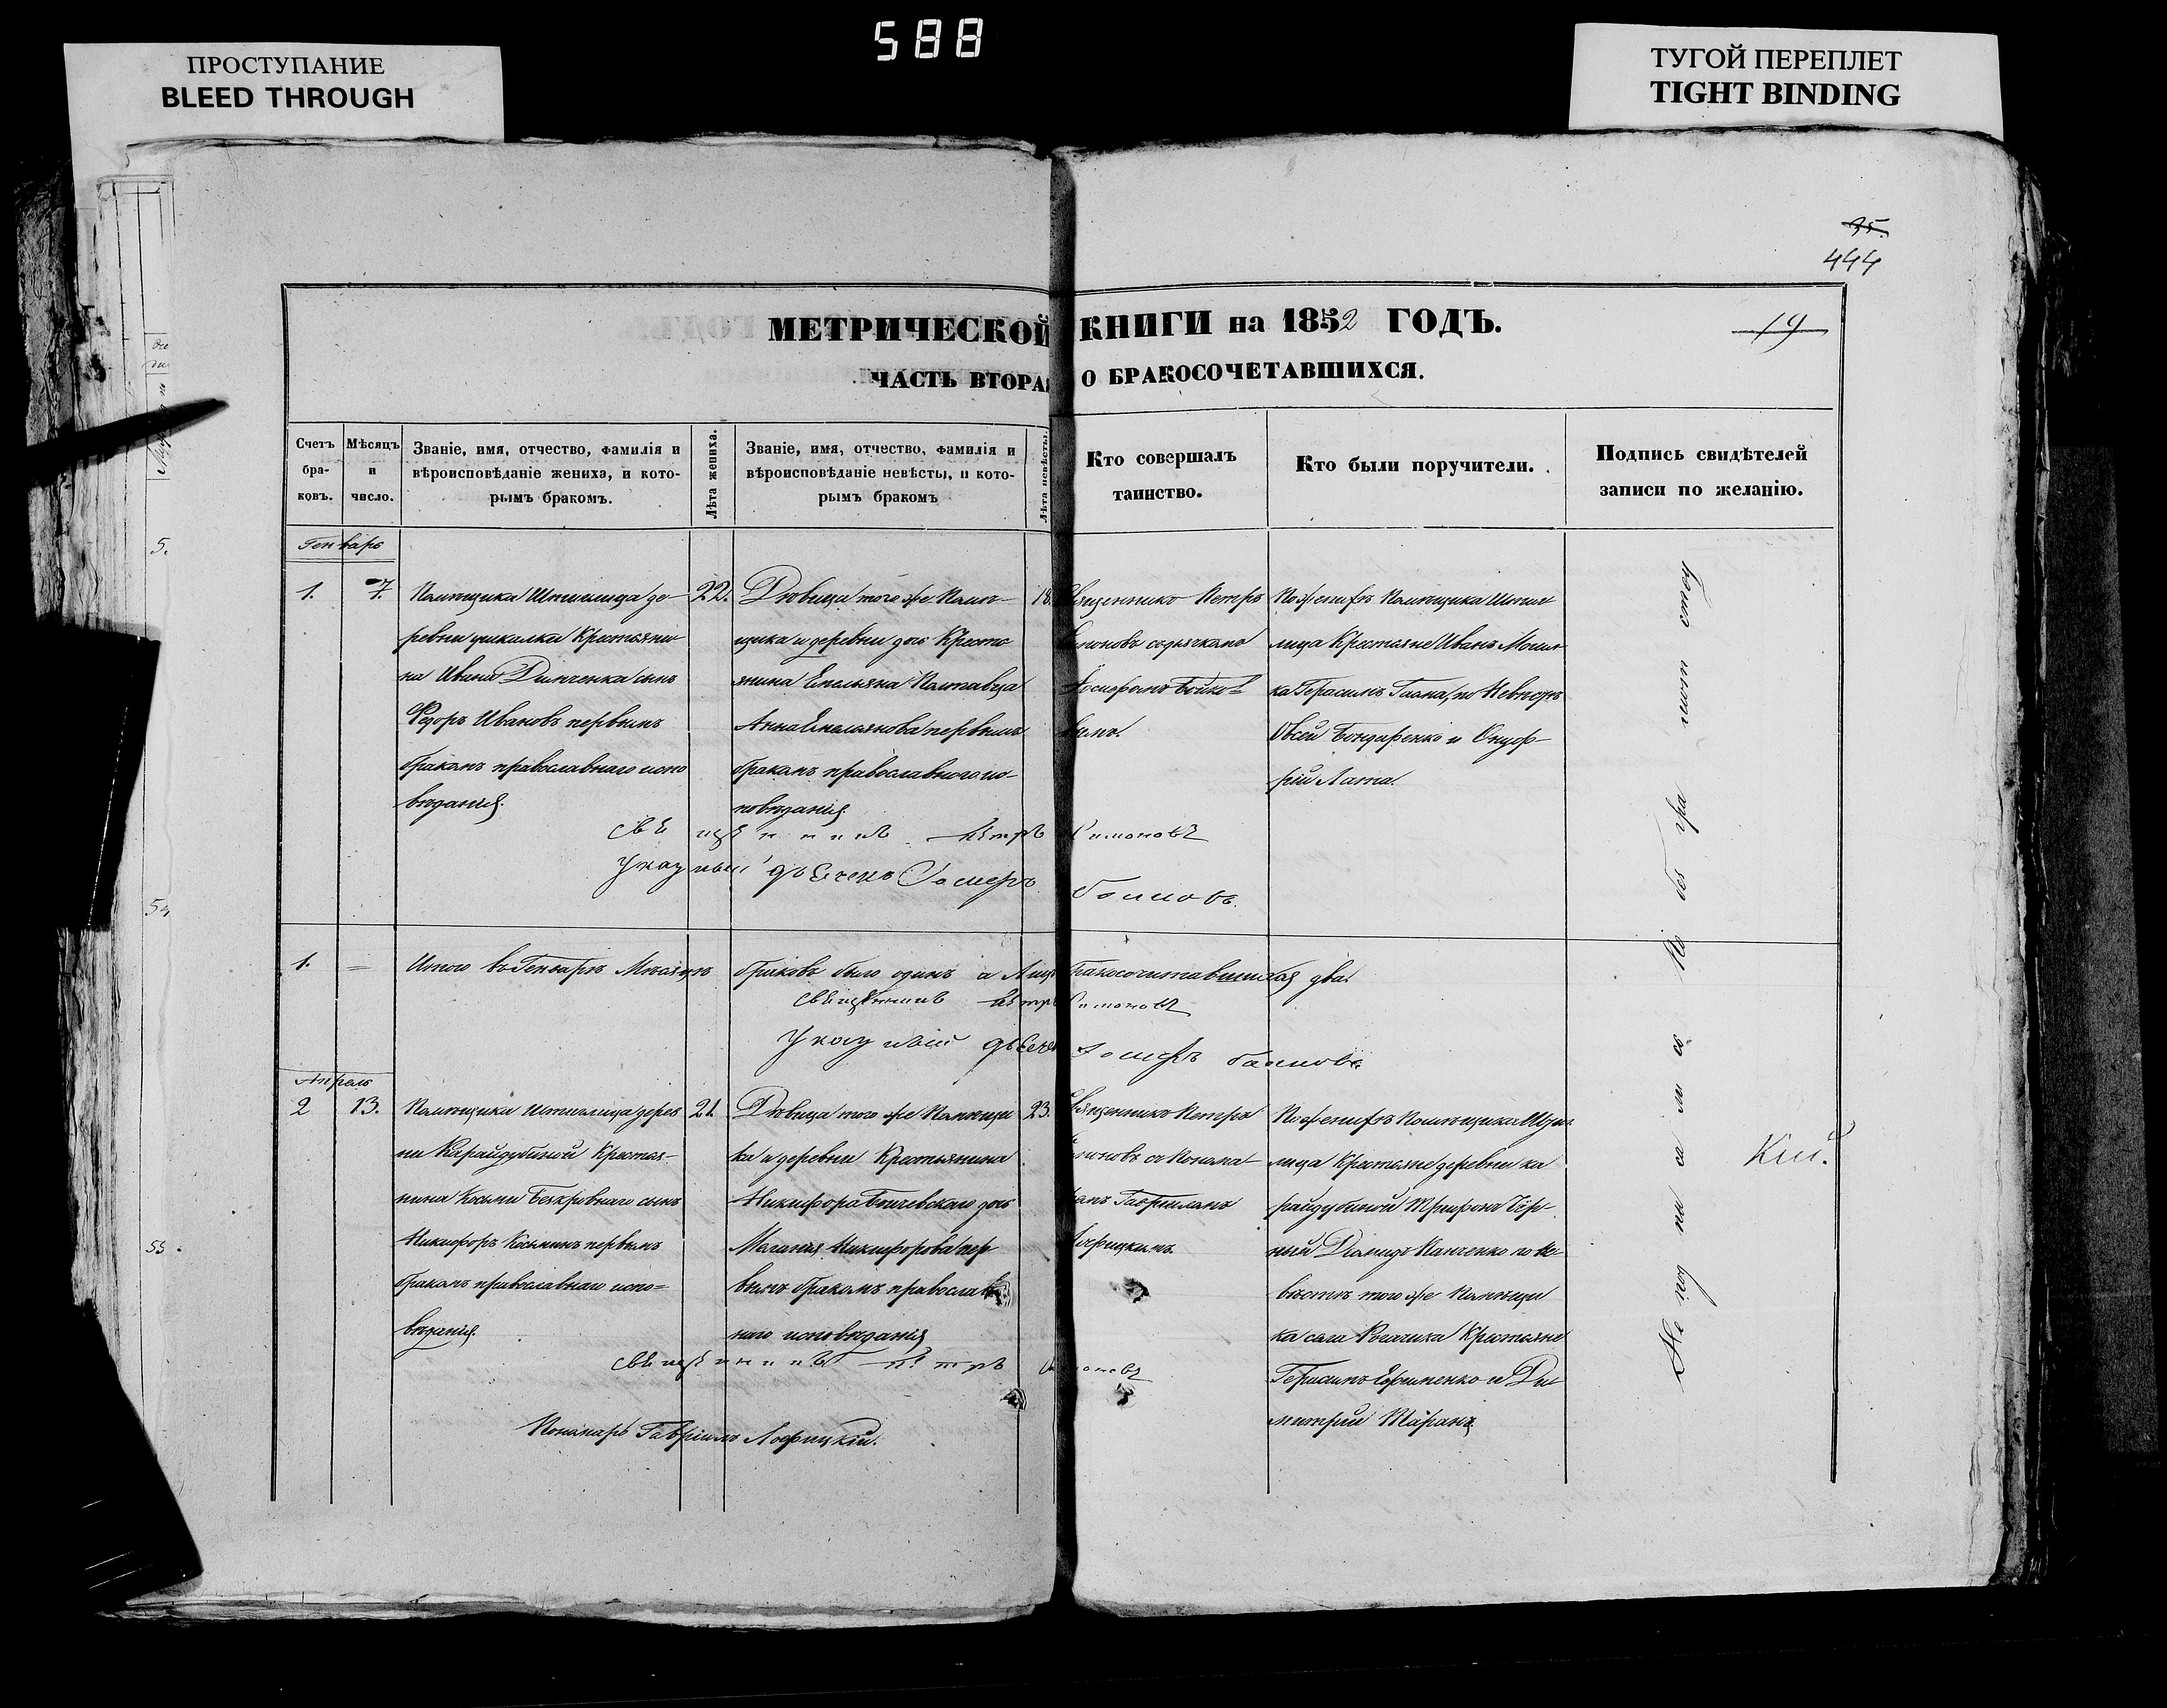 588
ПРОСТУПАНИЕ
BLEED THROUGH
ТУГОЙ ПЕРЕПЛЕТ
TIGHT BINDING
35.
444
МЕТРИЧЕСКОЙ КНИГИ на 1852 ГОДЪ.
19
ЧАСТЬ ВТОРАЯ О БРАКОСОЧЕТАВШИХСЯ.
Счетъ браковъ.
Мѣсяцъ и число.
Званіе, имя, отчество, фамилія и
вѣроисповѣданіе жениха, и кото-
рымъ бракомъ.
Лѣта жениха.
Званіе, имя, отчество, фамилія и
вѣроисповѣданіе невѣсты, и кото-
рымъ бракомъ
Лѣта невѣсты.
Кто совершалъ
таинство.
Кто были поручители.
Подпись свидѣтелей
записи по желанію.
Генварь
1.
7.
Помѣщика Штиглица де-
ревни Крестьяни-
на Ивана Димченка сынъ
Федоръ Ивановъ первымъ
бракомъ православнаго испо
вѣданія.
22.
Дѣвица того же Помѣ-
щика и деревни дочь Кресть
янина Емельяна Полтавца
Анна Емельянова первымъ
бракомъ православного ис-
повѣданія
18.
Священникъ Петръ
Симоновъ съ дьячкомъ
Іосифомъ Бойко-
вымъ.
По женихѣ Помѣщика Штиг
лица Крестьяне Иванъ
ка Герасимъ по Невѣстѣ
Овсей Бондаренко и Онуф-
рій Лата.
Священникъ Петръ Симоновъ
Указный дьячекъ Іосифъ Бойковъ.
1.
Итого въ Генварѣ Мѣсяцѣ браковъ было одинъ а лицъ бракосочетавшихся два.
Священникъ Петръ Симоновъ
Указный дьячекъ Іосифъ Бойковъ
Апрель
2
13.
Помѣщика Штиглица дерев
ни Карайдубиной Крестья-
нина Косьмы Безкровнаго сынъ
Никифоръ Косьминъ первымъ
бракомъ православнаго испо=
вѣданія.
21.
Дѣвица того же Помѣщи
ка и деревни Крестьянина
Никифора дочь
Меланія Никифорова пер
вымъ бракомъ православ
наго исповѣданія
23.
Священникъ Петръ
Симоновъ съ Понома-
ремъ Гавріиломъ
По женихѣ Помѣщика Штиг
лица Крестьяне деревни Ка
райдубиной Трифонъ Чер-
ный Діомидъ Панченко по Не
вѣстѣ того же Помѣщи
ка села Крестьяне
Герасимъ Ефименко и Ди
митрій Таранъ
Священникъ Петръ Симоновъ
Пономарь Гавріилъ
Кій.
5.
54
55